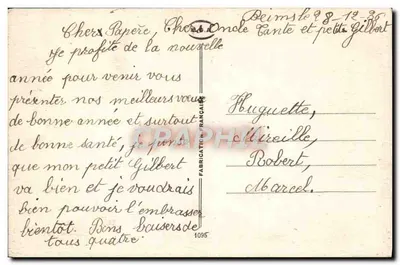 Reims le 28-12-36
Chers Papère, Chers Oncle Tante et petit Gilbert
Je profite de la nouvelle
année pour venir vous
présenter nos meilleurs vœux
de bonne année et surtout
de bonne santé, je pense
que mon petit Gilbert
va bien et je voudrais
bien pouvoir l'embrasser
bientot. Bons baisers de
tous quatre.
Huguette,
Mireille,
Robert,
Marcel.
FABRICATION FRANÇAISE
CPARAMA